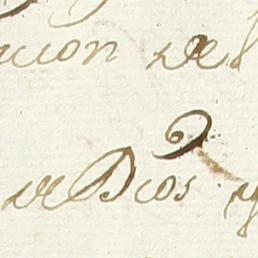 acion del
de Dios y